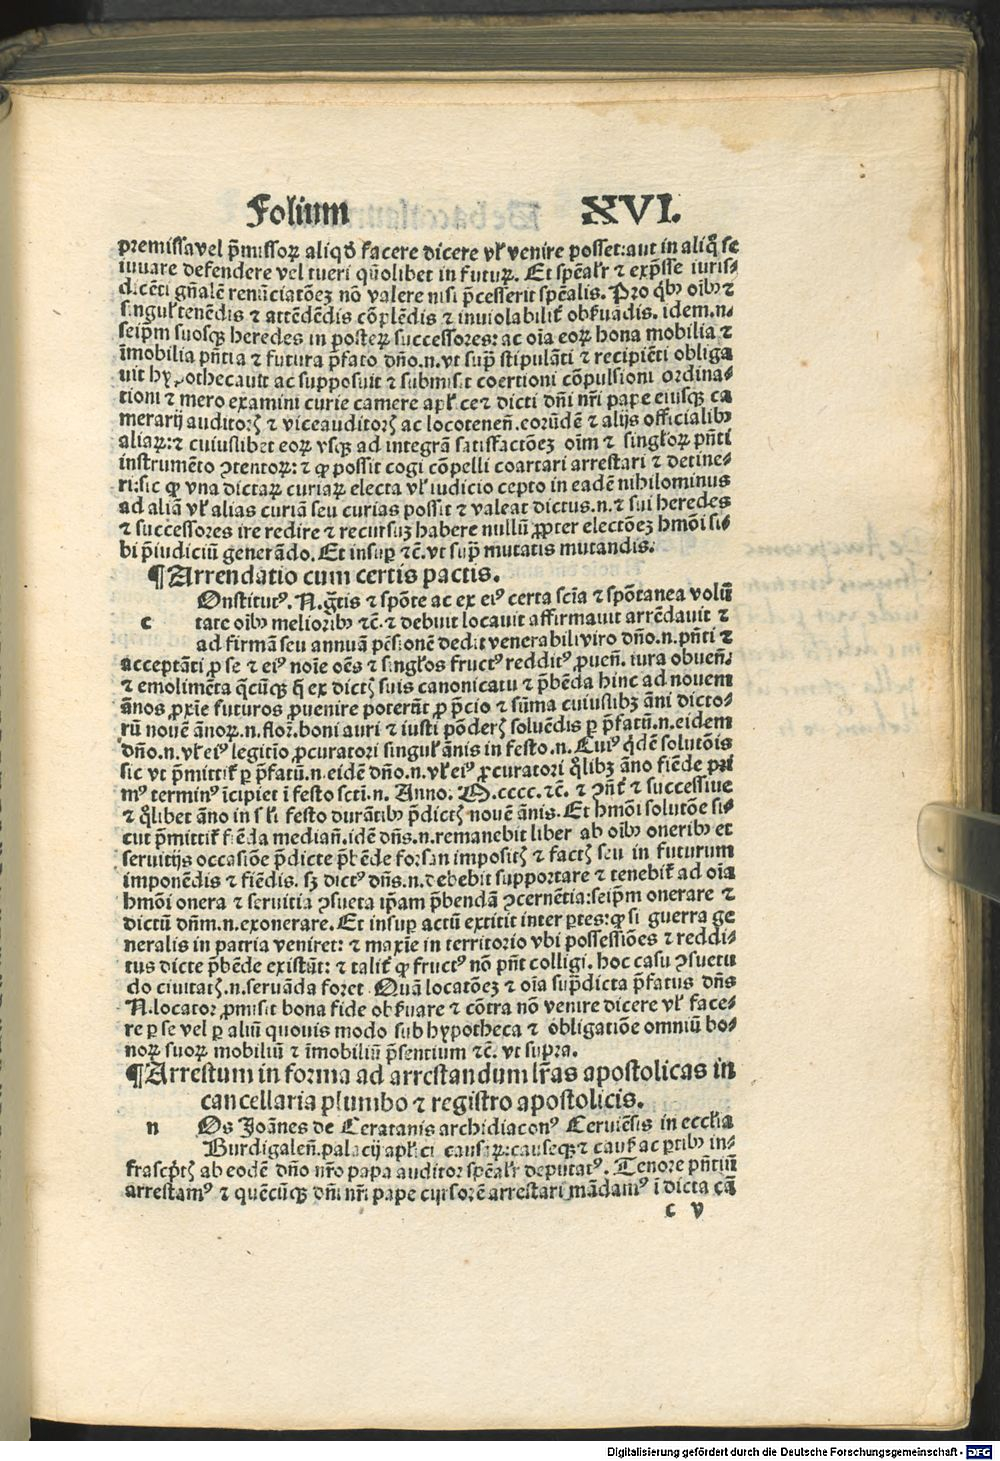 Folium XVI.
premissa vel p̄missoꝝ aliqd̄ facere dicere vl̓ venire posset: aut in aliq̄ se
iuuare defendere vel tueri qūolibet in futuꝝ. Et spēalr̓ ⁊ exp̄sse iuris⸗
dicēti gn̄alē renūciatōeꝫ nō valere nisi p̄cesserit spēalis. Pro qͥbꝰ oībꝰ ⁊
singul̓ tenēdis ⁊ attēdēdis cōplēdis ⁊ inuiolabilit̓ obẜuādis. idem .n.
seip̄m suosqꝫ heredes in posteꝝ successores: ac oīa eoꝝ bona mobilia ⁊
īmobilia pn̄tia ⁊ futura p̄fato dn̄o .n. vt sup̄ stipulāti ⁊ recipiēti obliga
uit hypothecauit ac supposuit ⁊ submisit coertioni cōpulsioni ordina⸗
tioni ⁊ mero examini curie camere apl̓ice ⁊ dicti dn̄i nr̄i pape eiusqꝫ ca
merarij auditoꝝ ⁊ viceauditoꝝ ac locotenen̄. eorūdem ⁊ alijs officialibꝰ
aliaꝝ: ⁊ cuiuslibet eoꝝ vsqꝫ ad integrā satisfactōeꝫ oīm ⁊ singl̓oꝝ pn̄ti
instrumēto ꝯtentoꝝ: ⁊ ꝙ possit cogi cōpelli coartari arrestari ⁊ detine⸗
ri: sic ꝙ vna dictaꝝ curiaꝝ electa vl̓ iudicio cepto in eadē nihilominus
ad aliā vl̓ alias curiā seu curias possit ⁊ valeat dictus .n. ⁊ sui heredes
⁊ successores ire redire ⁊ recursuꝫ habere nullū ꝓpter electōeꝫ hmōi si⸗
bi p̄iudiciū generādo. Et insuꝑ ⁊c̄. vt sup̄ mutatis mutandis.
¶ Arrendatio cum certis pactis.
Onstitutꝰ. N. gr̄tis ⁊ spōte ac ex eiꝰ certa scīa ⁊ spōtanea volū
c tate oībꝰ melioribꝰ ⁊c̄. ⁊ debuit locauit affirmauit arrēdauit ⁊
ad firmā seu annuā pēsionē dedit venerabili viro dn̄o .n. pn̄ti ⁊
acceptāti ꝓ se ⁊ eiꝰ noīe oēs ⁊ singl̓os fructꝰ redditꝰ ꝓuen̄. iura obuen̄.
⁊ emolimēta q̄cūqꝫ q̄ ex dictꝭ suis canonicatu ⁊ p̄bēda hinc ad nouem
ānos ꝓxīe futuros ꝓuenire poterūt ꝓ p̄cio ⁊ sūma cuiuslibꝫ āni dicto⸗
rū nouē ānoꝝ .n. flor̄. boni auri ⁊ iusti pōderꝭ soluēdis ꝑ p̄fatū .n. eidem
dn̄o .n. vl̓ eiꝰ legitīo ꝓcuratori singul̓ ānis in festo .n. Cuiꝰ qͥdē solutōis
sic vt p̄mittit̓ ꝑ p̄fatū .n. eidē dn̄o .n. vl̓ eiꝰ ꝓcuratori qͦlibꝫ āno fiēde pri
mꝰ terminꝰ īcipiet ī festo scti .n. Anno. M. cccc. ⁊c̄. ⁊ successiue
⁊ qͦlibet āno in festo durātibꝰ p̄dictꝭ nouē ānis. Et hmōi solutōe si⸗
cut p̄mittit̓ fiēda median̄. idē dn̄s .n. remanebit liber ab oībꝰ oneribꝰ et
seruitijs occasiōe p̄dicte p̄bēde forsan impositꝭ ⁊ factꝭ seu in futurum
imponēdis ⁊ fiēdis. sꝫ dictꝰ dn̄s .n. debebit supportare ⁊ tenebit̓ ad oīa
hmōi onera ⁊ seruitia ꝯsueta ip̄am p̄bendā ꝯcernētia: seip̄m onerare ⁊
dictū dn̄m .n. exonerare. Et insuꝑ actū extitit inter ꝑtes: ꝙ si guerra ge
neralis in patria veniret: ⁊ maxīe in territorio vbi possessiōes ⁊ reddi⸗
tus dicte p̄bēde existūt: ⁊ talit̓ ꝙ fructꝰ nō pn̄t colligi. hoc casu ꝯsuetu
do ciuitatꝭ .n. seruāda foret. Quā locatōeꝫ ⁊ oīa sup̄dicta p̄fatus dn̄s
N. locator ꝓmisit bona fide obẜuare ⁊ cōtra nō venire dicere vl̓ face⸗
re ꝑ se vel ꝑ aliū quouis modo sub hypotheca ⁊ obligatiōe omniū bo⸗
noꝝ suoꝝ mobiliū ⁊ īmobiliū p̄sentium ⁊c̄. vt supra.
¶ Arrestum in forma ad arrestandum lr̄as apostolicas in
cancellaria plumbo ⁊ registro apostolicis.
n Os Joānes de Ceratanis archidiaconꝰ Ceruiēsis in eccl̓ia
Burdigalen̄. palacij apl̓ici causaꝝ: causeqꝫ ⁊ cauẜ ac ꝑtibꝰ in⸗
frascp̄tꝭ ab eodē dn̄o nr̄o papa auditor spēalr̓ deputatꝰ. Tenore pn̄tiū
arrestamꝰ ⁊ quēcūqꝫ dn̄i nr̄i pape cursorē arrestari mādamꝰ ī dicta cā
c v
Digitalisierung gefördert durch die Deutsche Forschungsgemeinschaft - DFG